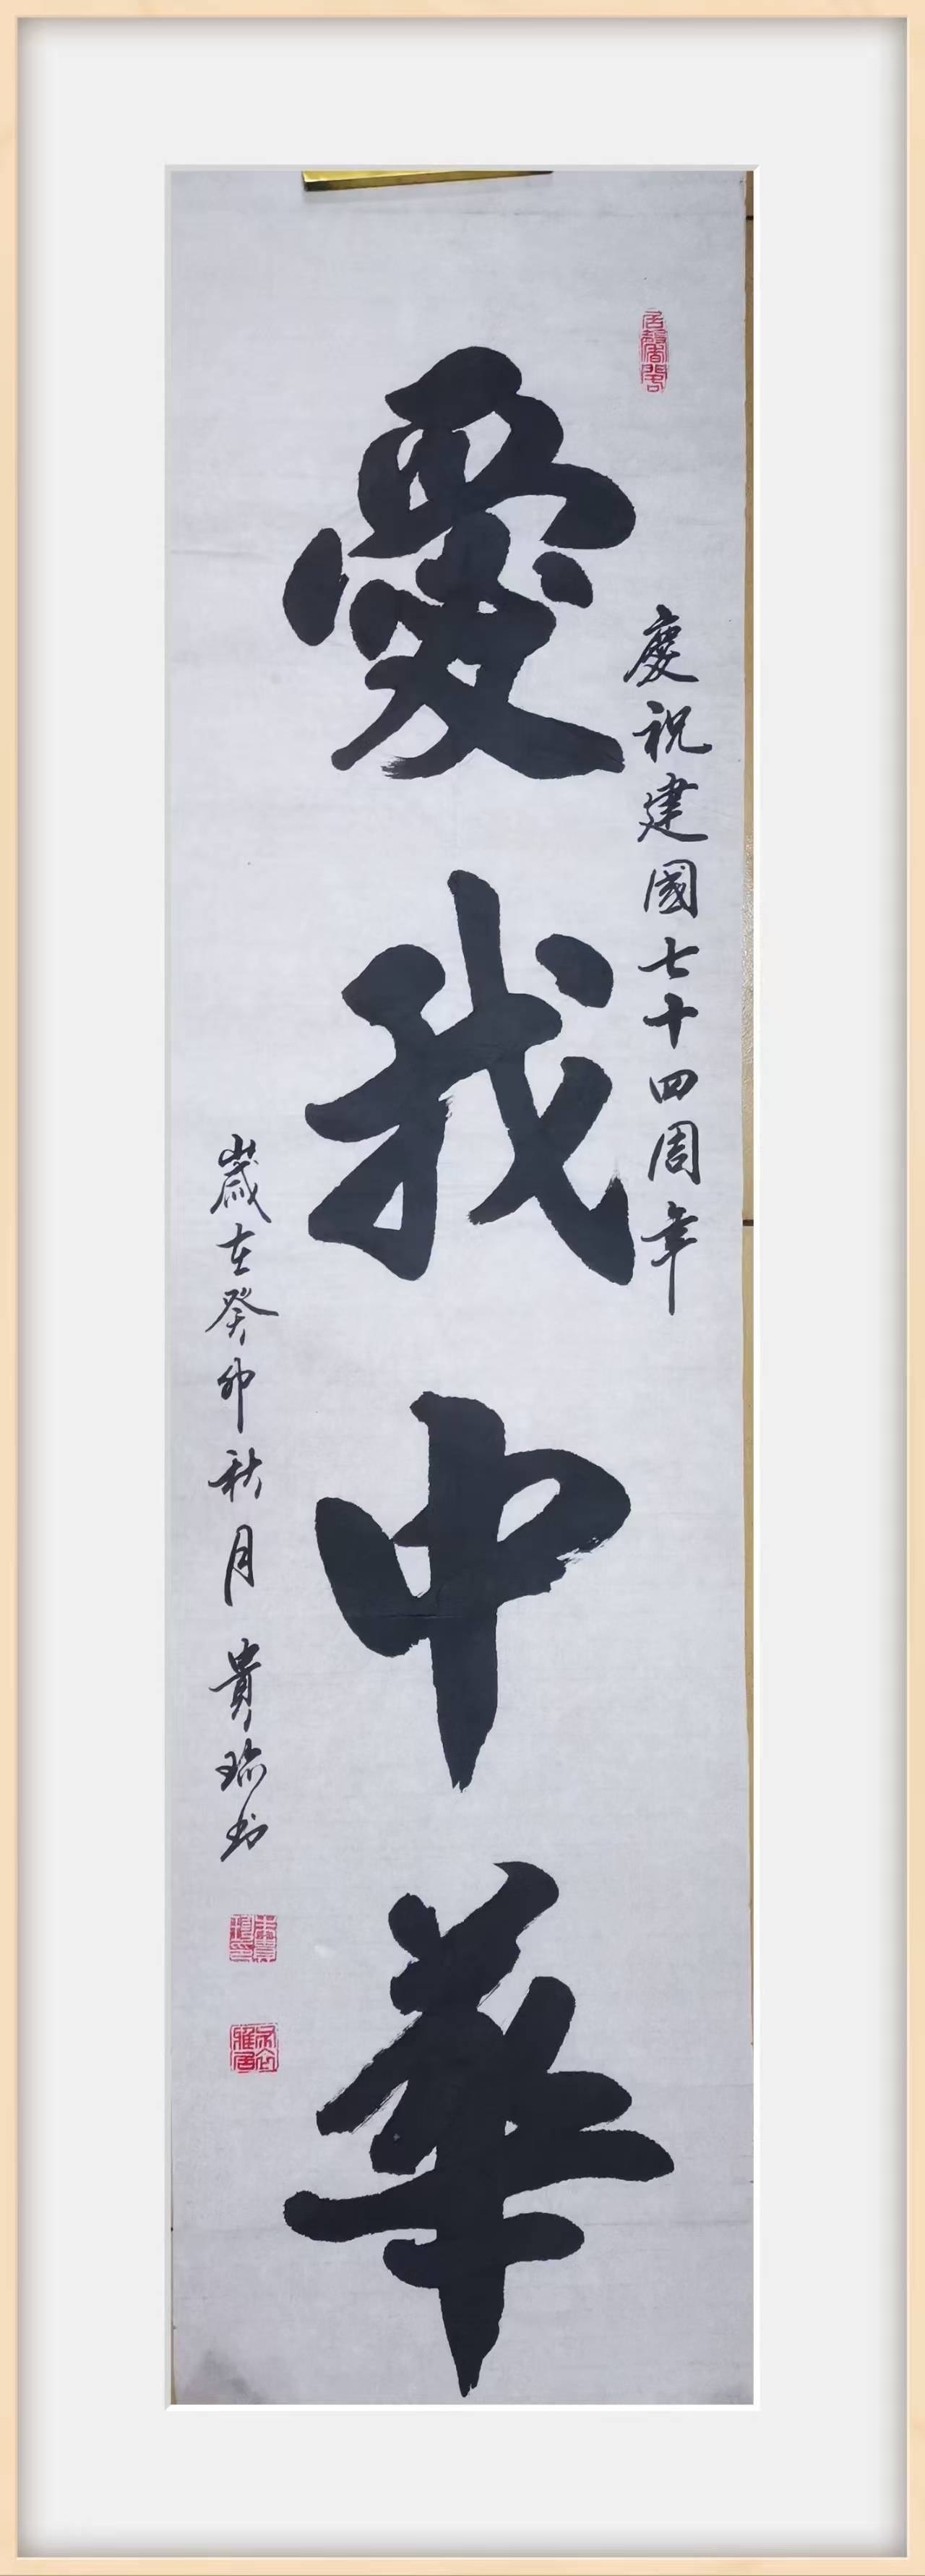 慶祝建國七十四周年
愛我中華
歲在癸卯秋月貴瑞书